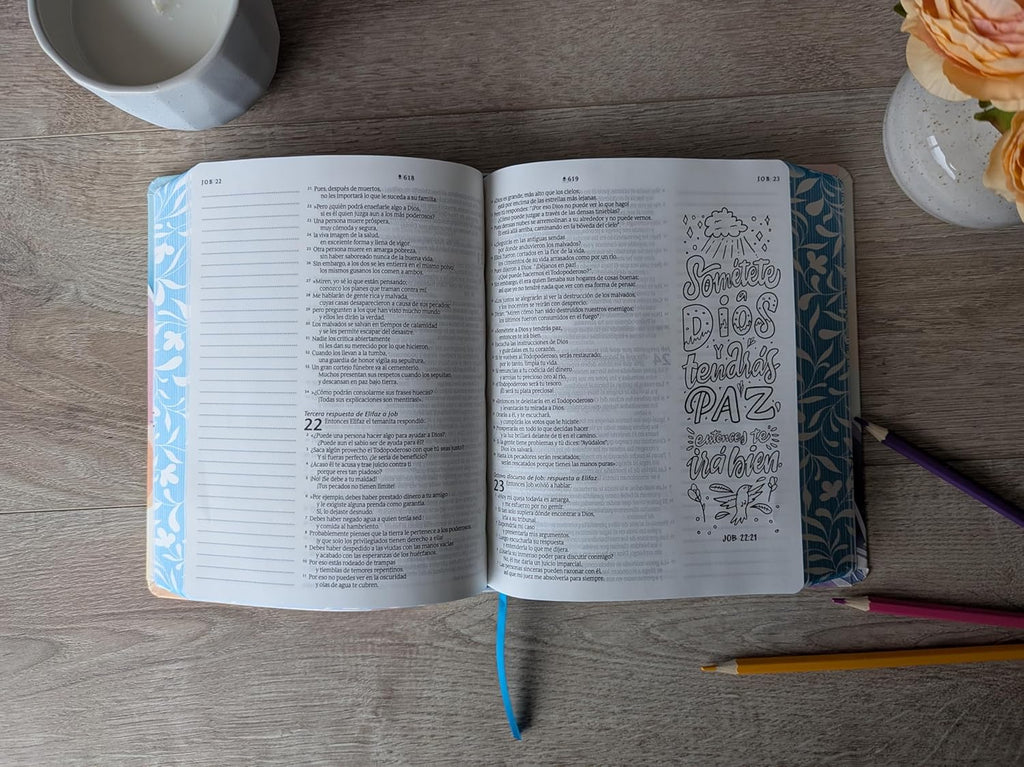 JOB 22
618
21 Pues, después de muertos,
no les importará lo que le suceda a su familia.
22 »Pero ¿quién podrá enseñarle algo a Dios,
si es él quien juzga aun a los más poderosos?
23 Una persona muere próspera,
muy cómoda y segura,
24 la viva imagen de la salud,
en excelente forma y llena de vigor.
25 Otra persona muere en amarga pobreza,
sin haber saboreado nunca de la buena vida.
26 Sin embargo, a los dos se les entierra en el mismo polvo;
los mismos gusanos los comen a ambos.
27 »Miren, yo sé lo que están pensando;
conozco los planes que traman contra mí.
28 Me hablarán de gente rica y malvada,
cuyas casas desaparecieron a causa de sus pecados;
29 pero pregunten a los que han visto mucho mundo
y ellos les dirán la verdad.
30 Los malvados se salvan en tiempos de calamidad
y se les permite escapar del desastre.
31 Nadie los critica abiertamente
ni les dan su merecido por lo que hicieron.
32 Cuando los llevan a la tumba,
una guardia de honor vigila su sepultura.
33 Un gran cortejo fúnebre va al cementerio.
Muchos presentan sus respetos cuando los sepultan,
y descansan en paz bajo tierra.
34 »¿Cómo podrán consolarme sus frases huecas?
¡Todas sus explicaciones son mentiras!».
Tercera respuesta de Elifaz a Job
22 Entonces Elifaz el temanita respondió:
2 «¿Puede una persona hacer algo para ayudar a Dios?
¿Puede aun el sabio ser de ayuda para él?
3 ¿Saca algún provecho el Todopoderoso con que tú seas justo?
Y si fueras perfecto, ¿le sería de beneficio?
4 ¿Acaso él te acusa y trae juicio contra ti
porque eres tan piadoso?
5 ¡No! ¡Se debe a tu maldad!
¡Tus pecados no tienen límite!
6 »Por ejemplo, debes haber prestado dinero a tu amigo
y le exigiste alguna prenda como garantía.
Sí, lo dejaste desnudo.
7 Debes haber negado agua a quien tenía sed,
y comida al hambriento.
8 Probablemente pienses que la tierra le pertenece a los poderosos
¡y que solo los privilegiados tienen derecho a ella!
9 Debes haber despedido a las viudas con las manos vacías
y acabado con las esperanzas de los huérfanos.
10 Por eso estás rodeado de trampas
y tiemblas de temores repentinos.
11 Por eso no puedes ver en la oscuridad
y olas de agua te cubren.
619
JOB 23
»Dios es grande, más alto que los cielos,
está por encima de las estrellas más lejanas.
Pero tú respondes: "¡Por eso Dios no puede ver lo que hago!
¿Cómo puede juzgar a través de las densas tinieblas?
Pues densas nubes se arremolinan a su alrededor y no puede vernos.
Él está allá arriba, caminando en la bóveda del cielo".
»¿Seguirás en las antiguas sendas
por donde anduvieron los malvados?
Ellos fueron cortados en la flor de la vida,
los cimientos de su vida arrasados como por un río.
Pues dijeron a Dios: "¡Déjanos en paz!
¿Qué puede hacernos el Todopoderoso?"
Sin embargo, él era quien llenaba sus hogares de cosas buenas;
así que yo no tendré nada que ver con esa forma de pensar.
»Los justos se alegrarán al ver la destrucción de los malvados,
y los inocentes se reirán con desprecio.
Dirán: "Miren cómo han sido destruidos nuestros enemigos;
los últimos fueron consumidos en el fuego".
»Sométete a Dios y tendrás paz,
entonces te irá bien.
Escucha las instrucciones de Dios
y guárdalas en tu corazón.
Si te vuelves al Todopoderoso, serás restaurado;
por lo tanto, limpia tu vida.
Si renuncias a tu codicia del dinero
y arrojas tu precioso oro al río,
el Todopoderoso será tu tesoro.
¡Él será tu plata preciosa!
»Entonces te deleitarás en el Todopoderoso
y levantarás tu mirada a Dios.
Orarás a él, y te escuchará,
y cumplirás los votos que le hiciste.
Prosperarás en todo lo que decidas hacer
y la luz brillará delante de ti en el camino.
Si la gente tiene problemas y tú dices: "Ayúdalos",
Dios los salvará.
Hasta los pecadores serán rescatados;
serán rescatados porque tienes las manos puras».
Octavo discurso de Job: respuesta a Elifaz
23 Entonces Job volvió a hablar:
«Hoy mi queja todavía es amarga,
y me esfuerzo por no gemir.
Si tan solo supiera dónde encontrar a Dios,
iría a su tribunal.
Expondría mi caso
y presentaría mis argumentos.
Luego escucharía su respuesta
y entendería lo que me dijera.
¿Usaría su inmenso poder para discutir conmigo?
No, él me daría un juicio imparcial.
Las personas sinceras pueden razonar con él,
así que mi juez me absolvería para siempre.
Sométete
a
DIOS
y
tendrás
PAZ,
entonces te
irá bien.
JOB 22:21